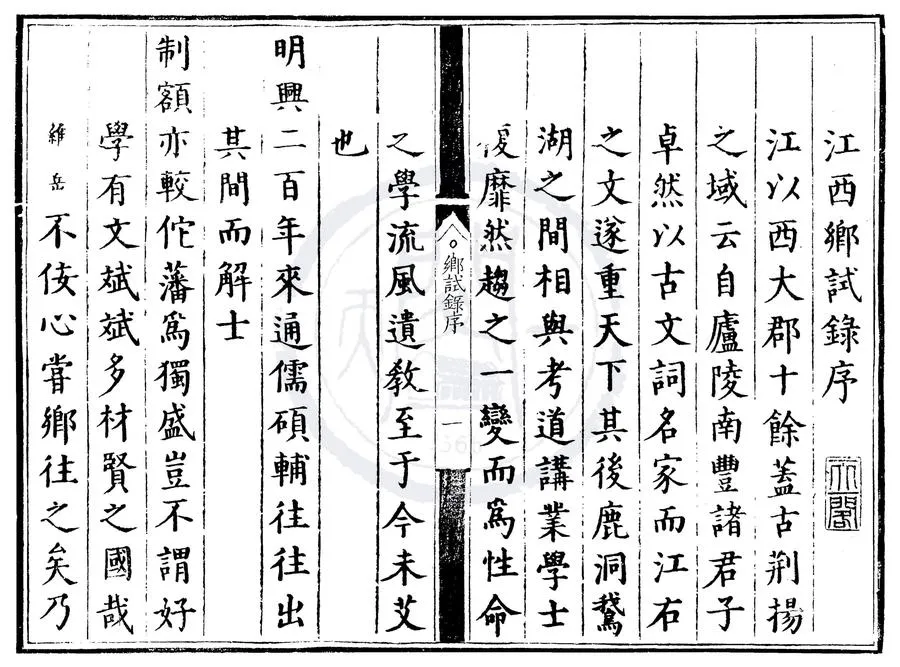 江西鄉試錄序
江以西大郡十餘蓋古荆揚
之域云自廬陵南豐諸君子
卓然以古文詞名家而江右
之文遂重天下其後鹿洞鵞
湖之間相與考道講業學士
復靡然趨之一變而爲性命
鄉試錄序 一
之學流風遺敎至于今未艾
也
明興二百年來通儒碩輔往往出
其間而解士
制額亦較佗藩爲獨盛豈不謂好
學有文斌斌多材賢之國哉
維岳不佞心嘗鄉往之矣乃
天一閣